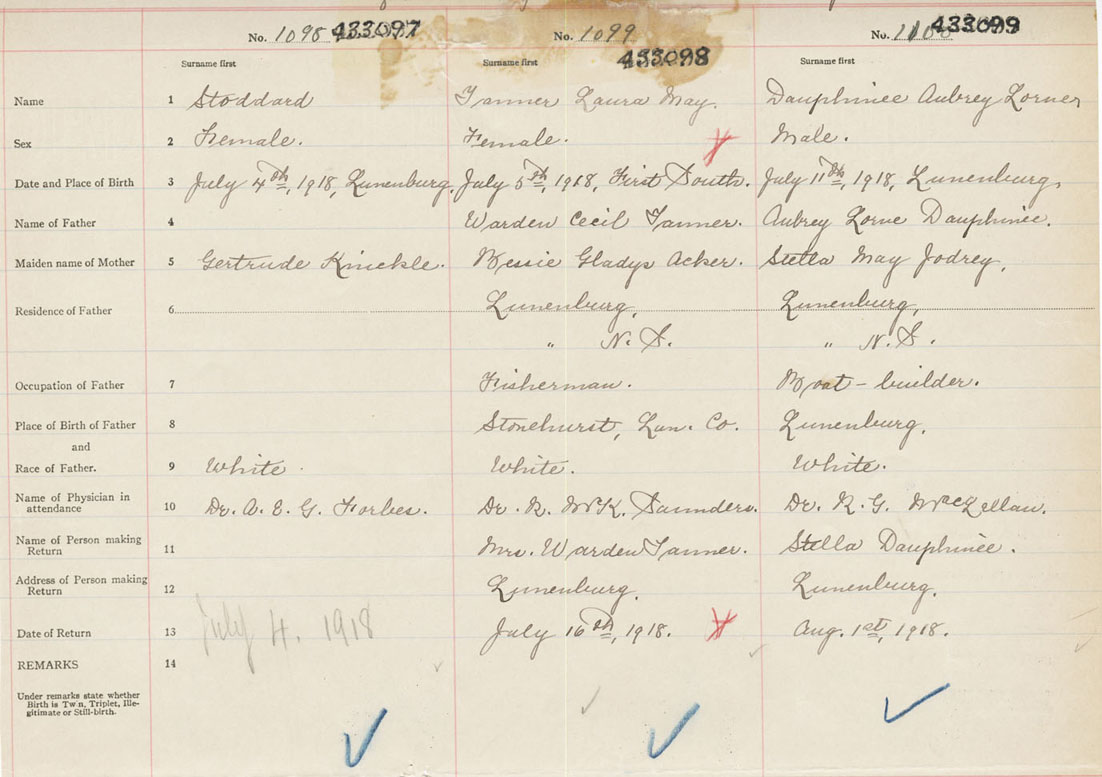 No. 1098 433097 No. 1099 433098 No. 1100 433099
Surname first Surname first Surname first
Name 1 Stoddard Tanner Laura May. Dauphinee Aubrey Lorne
Sex 2 Female. Female. Male.
Date and Place of Birth 3 July 4th, 1918, Lunenburg. July 5th, 1918, First South. July 11th, 1918, Lunenburg.
Name of Father 4 Warden Cecil Tanner. Aubrey Lorne Dauphinee.
Maiden name of Mother 5 Gertrude Knickle. Bessie Gladys Acker. Stella May Jodrey.
Residence of Father 6 Lunenburg, Lunenburg,
" N. S. " N. S.
Occupation of Father 7 Fisherman. Boat-builder.
Place of Birth of Father 8 Stonehurst, Lun. Co. Lunenburg.
and
Race of Father. 9 White. White. White.
Name of Physician in
attendance 10 Dr. A. E. G. Forbes. Dr. R. McK. Saunders. Dr. R. G. MacLellan.
Name of Person making
Return 11 Mrs. Warden Tanner. Stella Dauphinee.
Address of Person making
Return 12 Lunenburg. Lunenburg.
Date of Return 13 July 4. 1918 July 16th, 1918. Aug. 1st, 1918.
REMARKS 14
Under remarks state whether
Birth is Twin, Triplet, Ille-
gitimate or Still-birth.